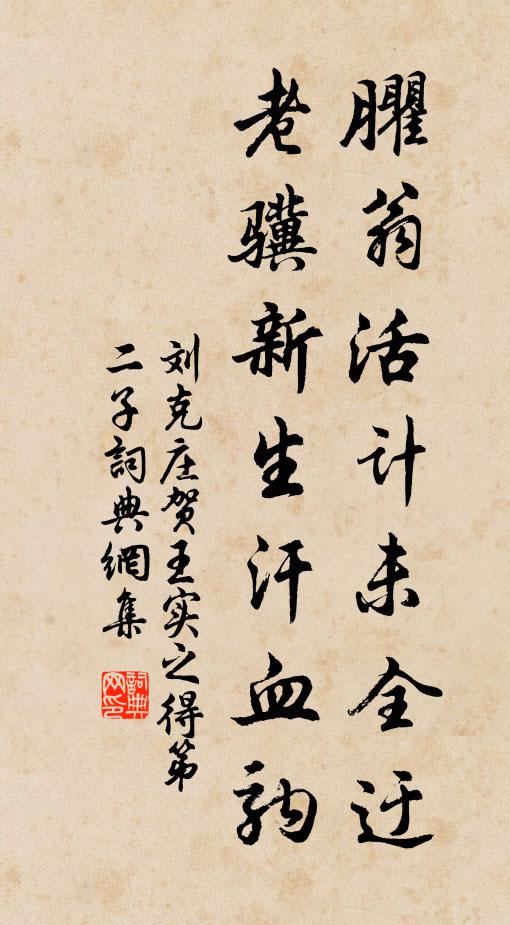 臞翁活计未全迂
老骥新生汗血驹
刘克庄贺王实之得第
二子詞典網集
詞典網印